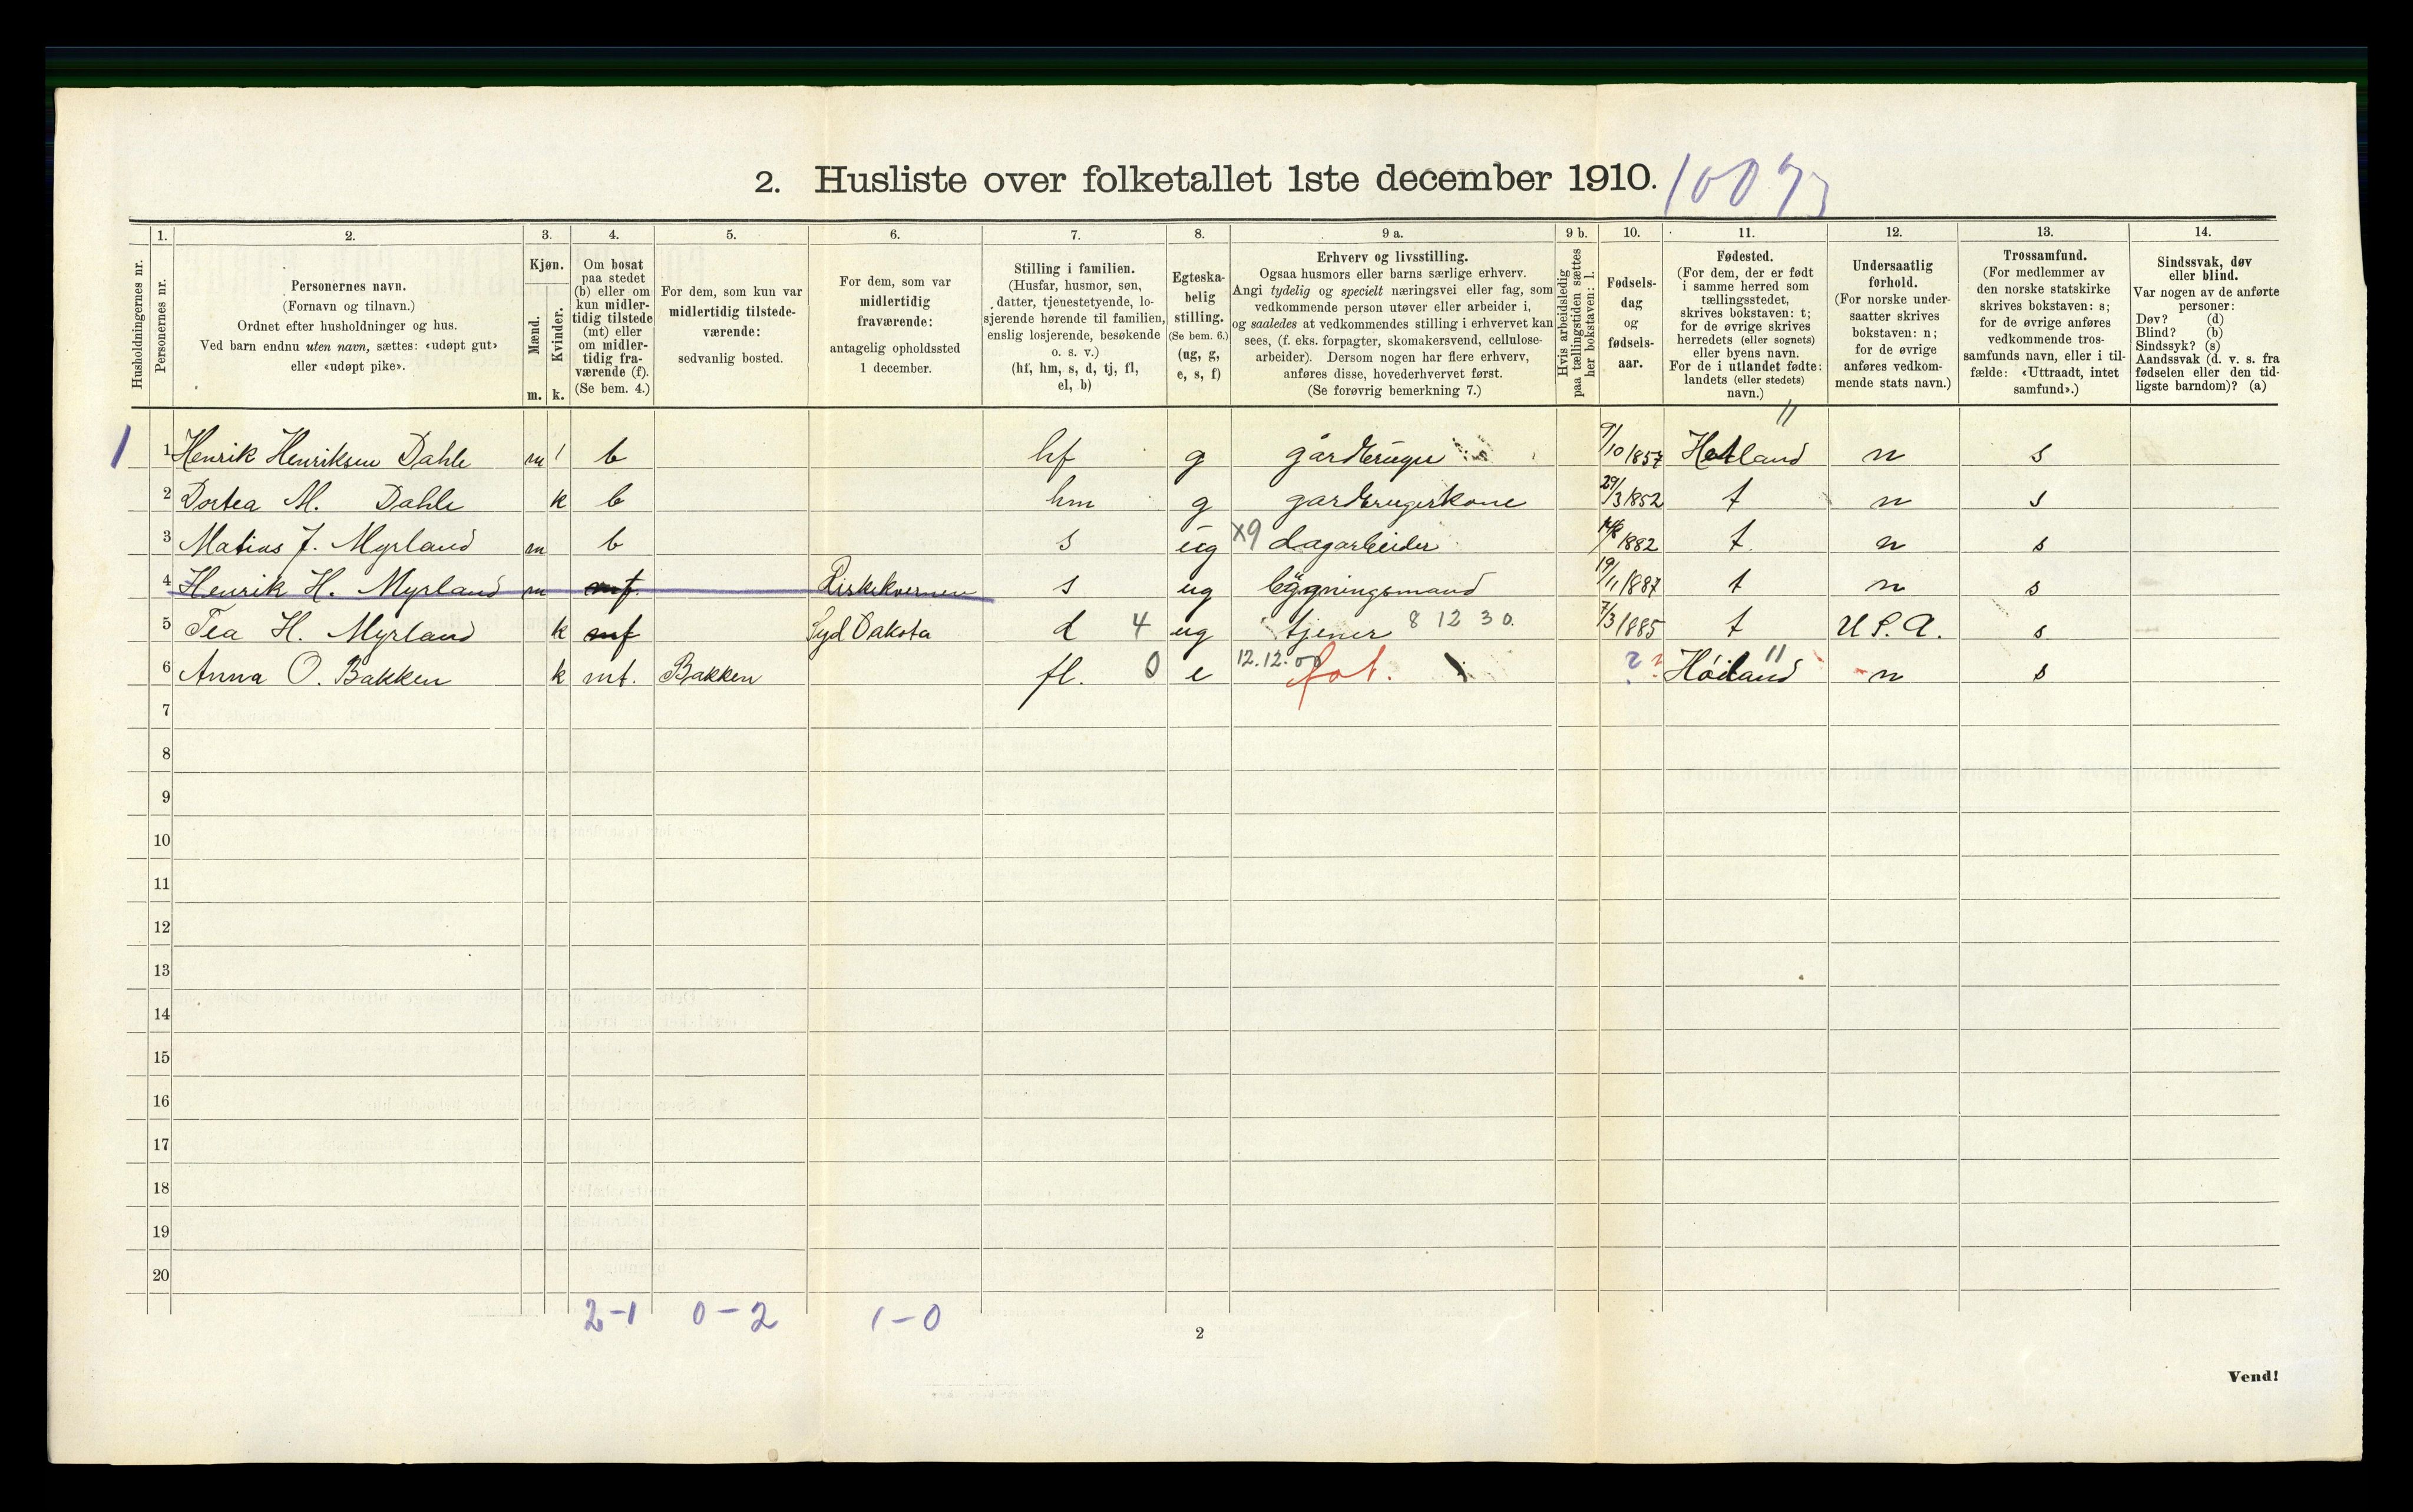 2. Husliste over folketallet 1ste december 1910.
1. 2. 3. 4. 5. 6. 7. 8. 9 a. 9 b. 10. 11. 12. 13. 14.
Husholdningernes nr.
Personernes nr.
Personernes navn.
(Fornavn og tilnavn.)
Ordnet efter husholdninger og hus.
Ved barn endnu uten navn, sættes: «udøpt gut»
eller «udøpt pike».
Kjøn.
Mænd.
Kvinder.
m. k.
Om bosat
paa stedet
(b) eller om
kun midler-
tidig tilstede
(mt) eller
om midler-
tidig fra-
værende (f).
(Se bem. 4.)
For dem, som kun var
midlertidig tilstede-
værende:
sedvanlig bosted.
For dem, som var
midlertidig
fraværende:
antagelig opholdssted
1 december.
Stilling i familien.
(Husfar, husmor, søn,
datter, tjenestetyende, lo-
sjerende hørende til familien,
enslig losjerende, besøkende
o. s. v.)
(hf, hm, s, d, tj, fl,
el, b)
Egteska-
belig
stilling.
(Se bem. 6.)
(ug, g,
e, s, f)
Erhverv og livsstilling.
Ogsaa husmors eller barns særlige erhverv.
Angi tydelig og specielt næringsvei eller fag, som
vedkommende person utøver eller arbeider i,
og saaledes at vedkommendes stilling i erhvervet kan
sees, (f. eks. forpagter, skomakersvend, cellulose-
arbeider). Dersom nogen har flere erhverv,
anføres disse, hovederhvervet først.
(Se forøvrig bemerkning 7.)
Hvis arbeidsledig
paa tællingstiden sættes
her bokstaven: l.
Fødsels-
dag
og
fødsels-
aar.
Fødested.
(For dem, der er født
i samme herred som
tællingsstedet,
skrives bokstaven: t;
for de øvrige skrives
herredets (eller sognets)
eller byens navn.
For de i utlandet fødte:
landets (eller stedets)
navn.)
Undersaatlig
forhold.
(For norske under-
saatter skrives
bokstaven: n;
for de øvrige
anføres vedkom-
mende stats navn.)
Trossamfund.
(For medlemmer av
den norske statskirke
skrives bokstaven: s;
for de øvrige anføres
vedkommende tros-
samfunds navn, eller i til-
fælde: «Uttraadt, intet
samfund».)
Sindssvak, døv
eller blind.
Var nogen av de anførte
personer:
Døv? (d)
Blind? (b)
Sindssyk? (s)
Aandssvak (d. v. s. fra
fødselen eller den tid-
ligste barndom)? (a)
1 1 Henrik Henriksen Dahle m 1 b hf g gårdbruger 9/10 1857 Hetland n s
2 Dortea M. Dahle k b hm g gardbrugerkone 29/3 1852 t n s
3 Matias J. Myrland m b s ug x9 dagarbeider 1882 t. n s
4 Henrik H. Myrland m mf. s ug bygningsmand 19/11 1887 t n s
5 Tea H. Myrland k mf Syd Dakota d 4 ug tjener 8 12 30. 7/3 1885 t U S. A. s
6 Anna O. Bakken k mt. Bakken fl. 0 e 12.12.00 fot. ? ? Høiland n s
7
8
9
10
11
12
13
14
15
16
17
18
19
20
2-1 0-2 1-0
2
Vend!